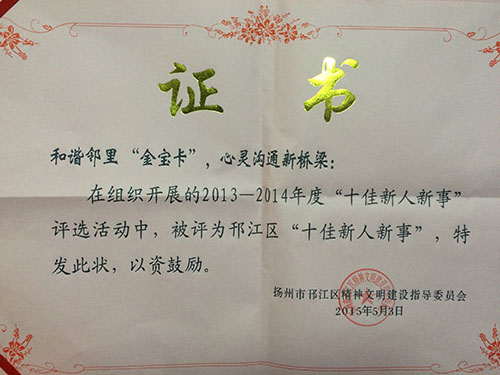 证 书
和谐邻里“金宝卡”，心灵沟通新桥梁：
在组织开展的2013—2014年度“十佳新人新事”
评选活动中，被评为邗江区“十佳新人新事”，特
发此状，以资鼓励。
扬州市邗江区精神文明建设指导委员会
2015年5月3日